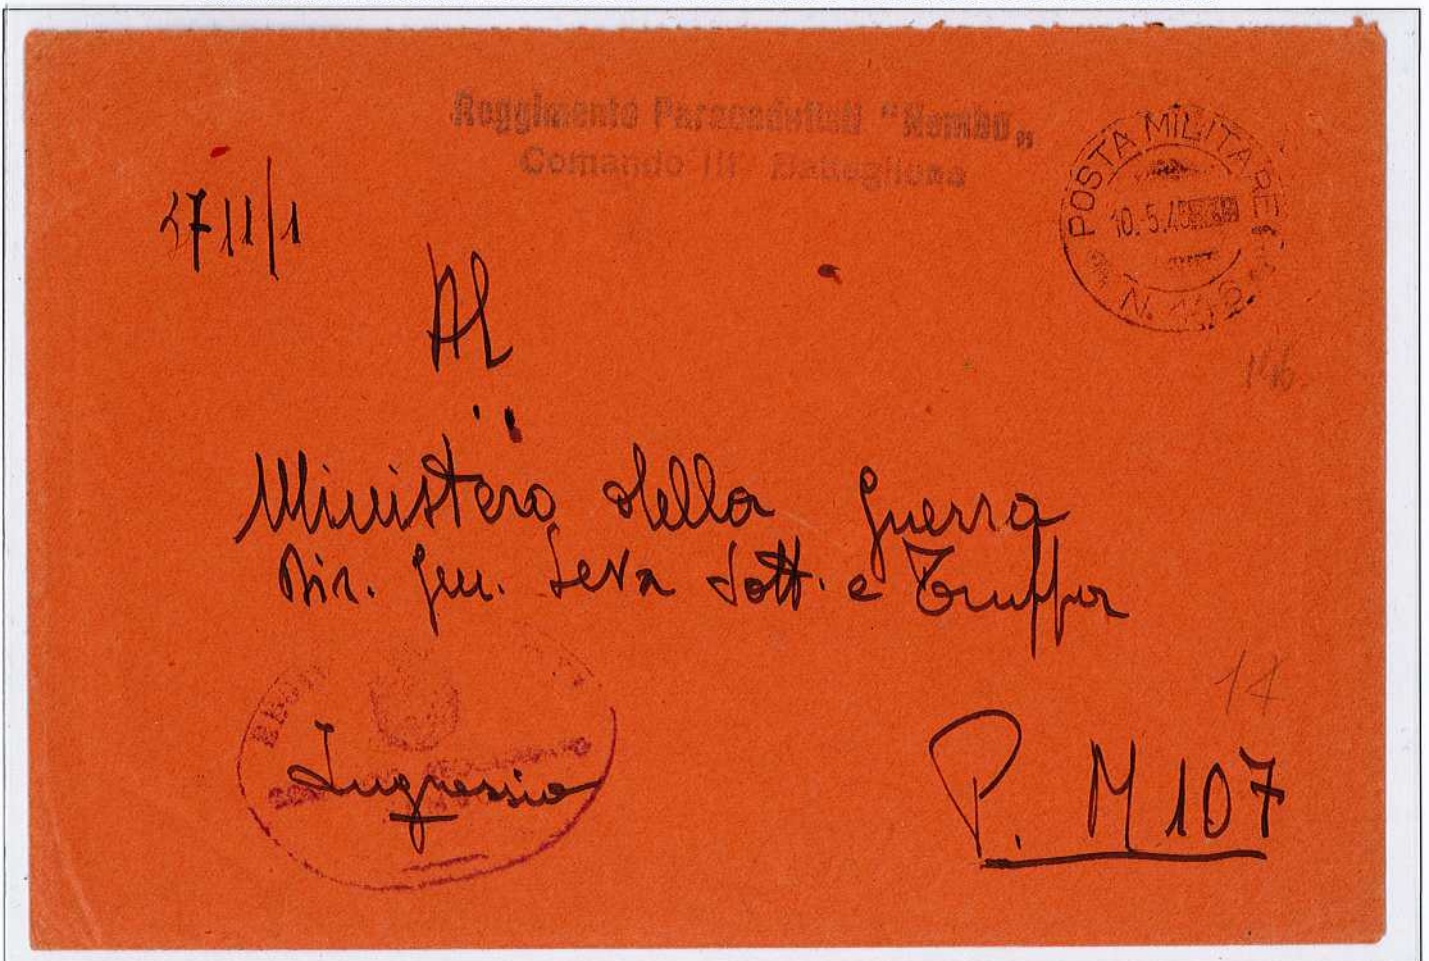 Reggimento Paracadutisti "Nembo„
Comando III Battaglione
POSTA MILITARE
10.5.45
N.
4711/1
Al
146
Ministero della Guerra
Dir. Gen. Leva Sott. e Truppa
17
P. M 107